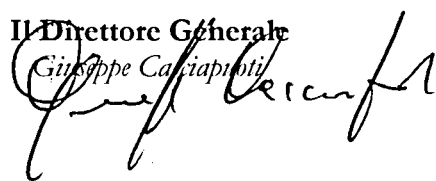 Il Direttore Generale
Giuseppe Cacciapuoti